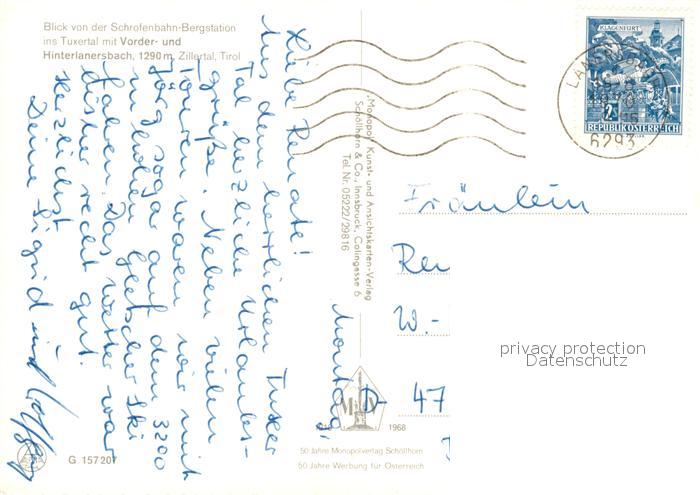 Blick von der Schrofenbahn-Bergstation
ins Tuxertal mit Vorder- und
Hinterlanersbach, 1290 m, Zillertal, Tirol
Montag,
Liebe Renate!
Aus dem herrlichen Tuxer
Tal herzliche Urlaubs-
grüße. Neben vielen
Touren waren wir mit
Jörg sogar auf dem 3200
m hohen Gletscher Ski
fahren. Das Wetter war
bisher recht gut.
Herzlichst
Deine Sigrid und
„Monopol“ Kunst- und Ansichtskarten-Verlag
Schöllhorn & Co., Innsbruck, Colingasse 6
Tel. Nr. 05222/29816
KLAGENFURT
2S
REPUBLIK ÖSTERREICH
6293
Fräulein
Ren
W.-
D- 47
privacy protection
Datenschutz
1968
50 Jahre Monopolverlag Schöllhorn
50 Jahre Werbung für Österreich
G 157207